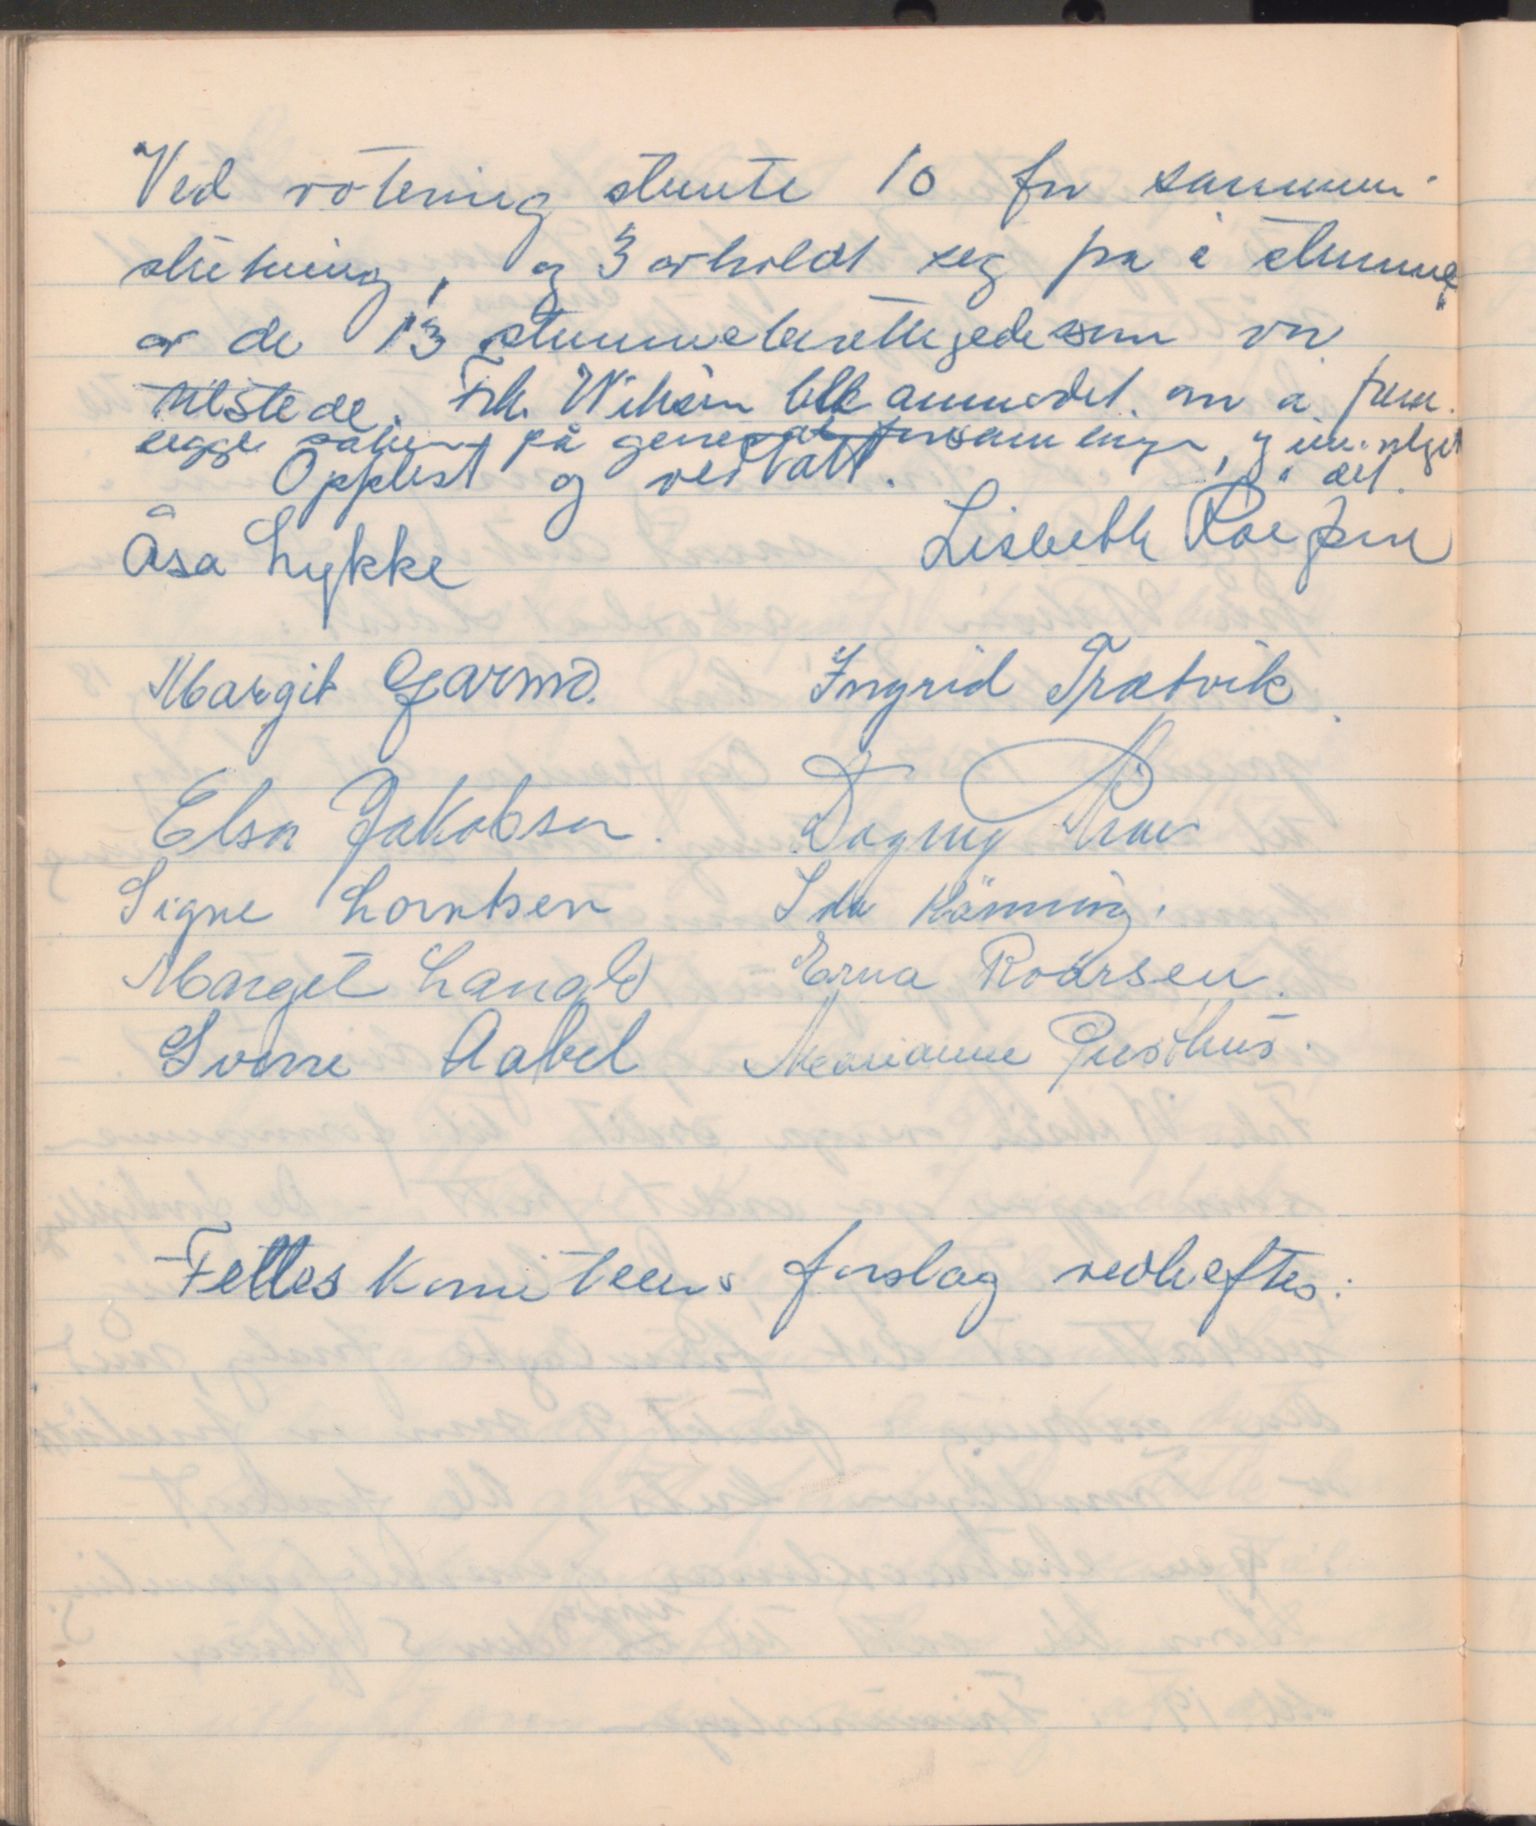 Ved votering stemte 10 for sammen-
slutning, og 3 avholdt seg fra å stemme,
av de 13 stemmeberettigede som var
tilstede. Frk. Wiksén ble anmodet om å frem-
legge saken på generalforsamlingen,
og det.
Opplest og vedtatt.
Åsa Lykke Lisbeth
Margit Garmo. Ingrid Trætvik.
Elsa Jakobsen. Dagny
Signe Lorntsen Ida Rönning.
Marget Langli Erna Roarsen.
Sverre Aabel Marianne Presthus.
Felleskomiteens forslag vedheftes.